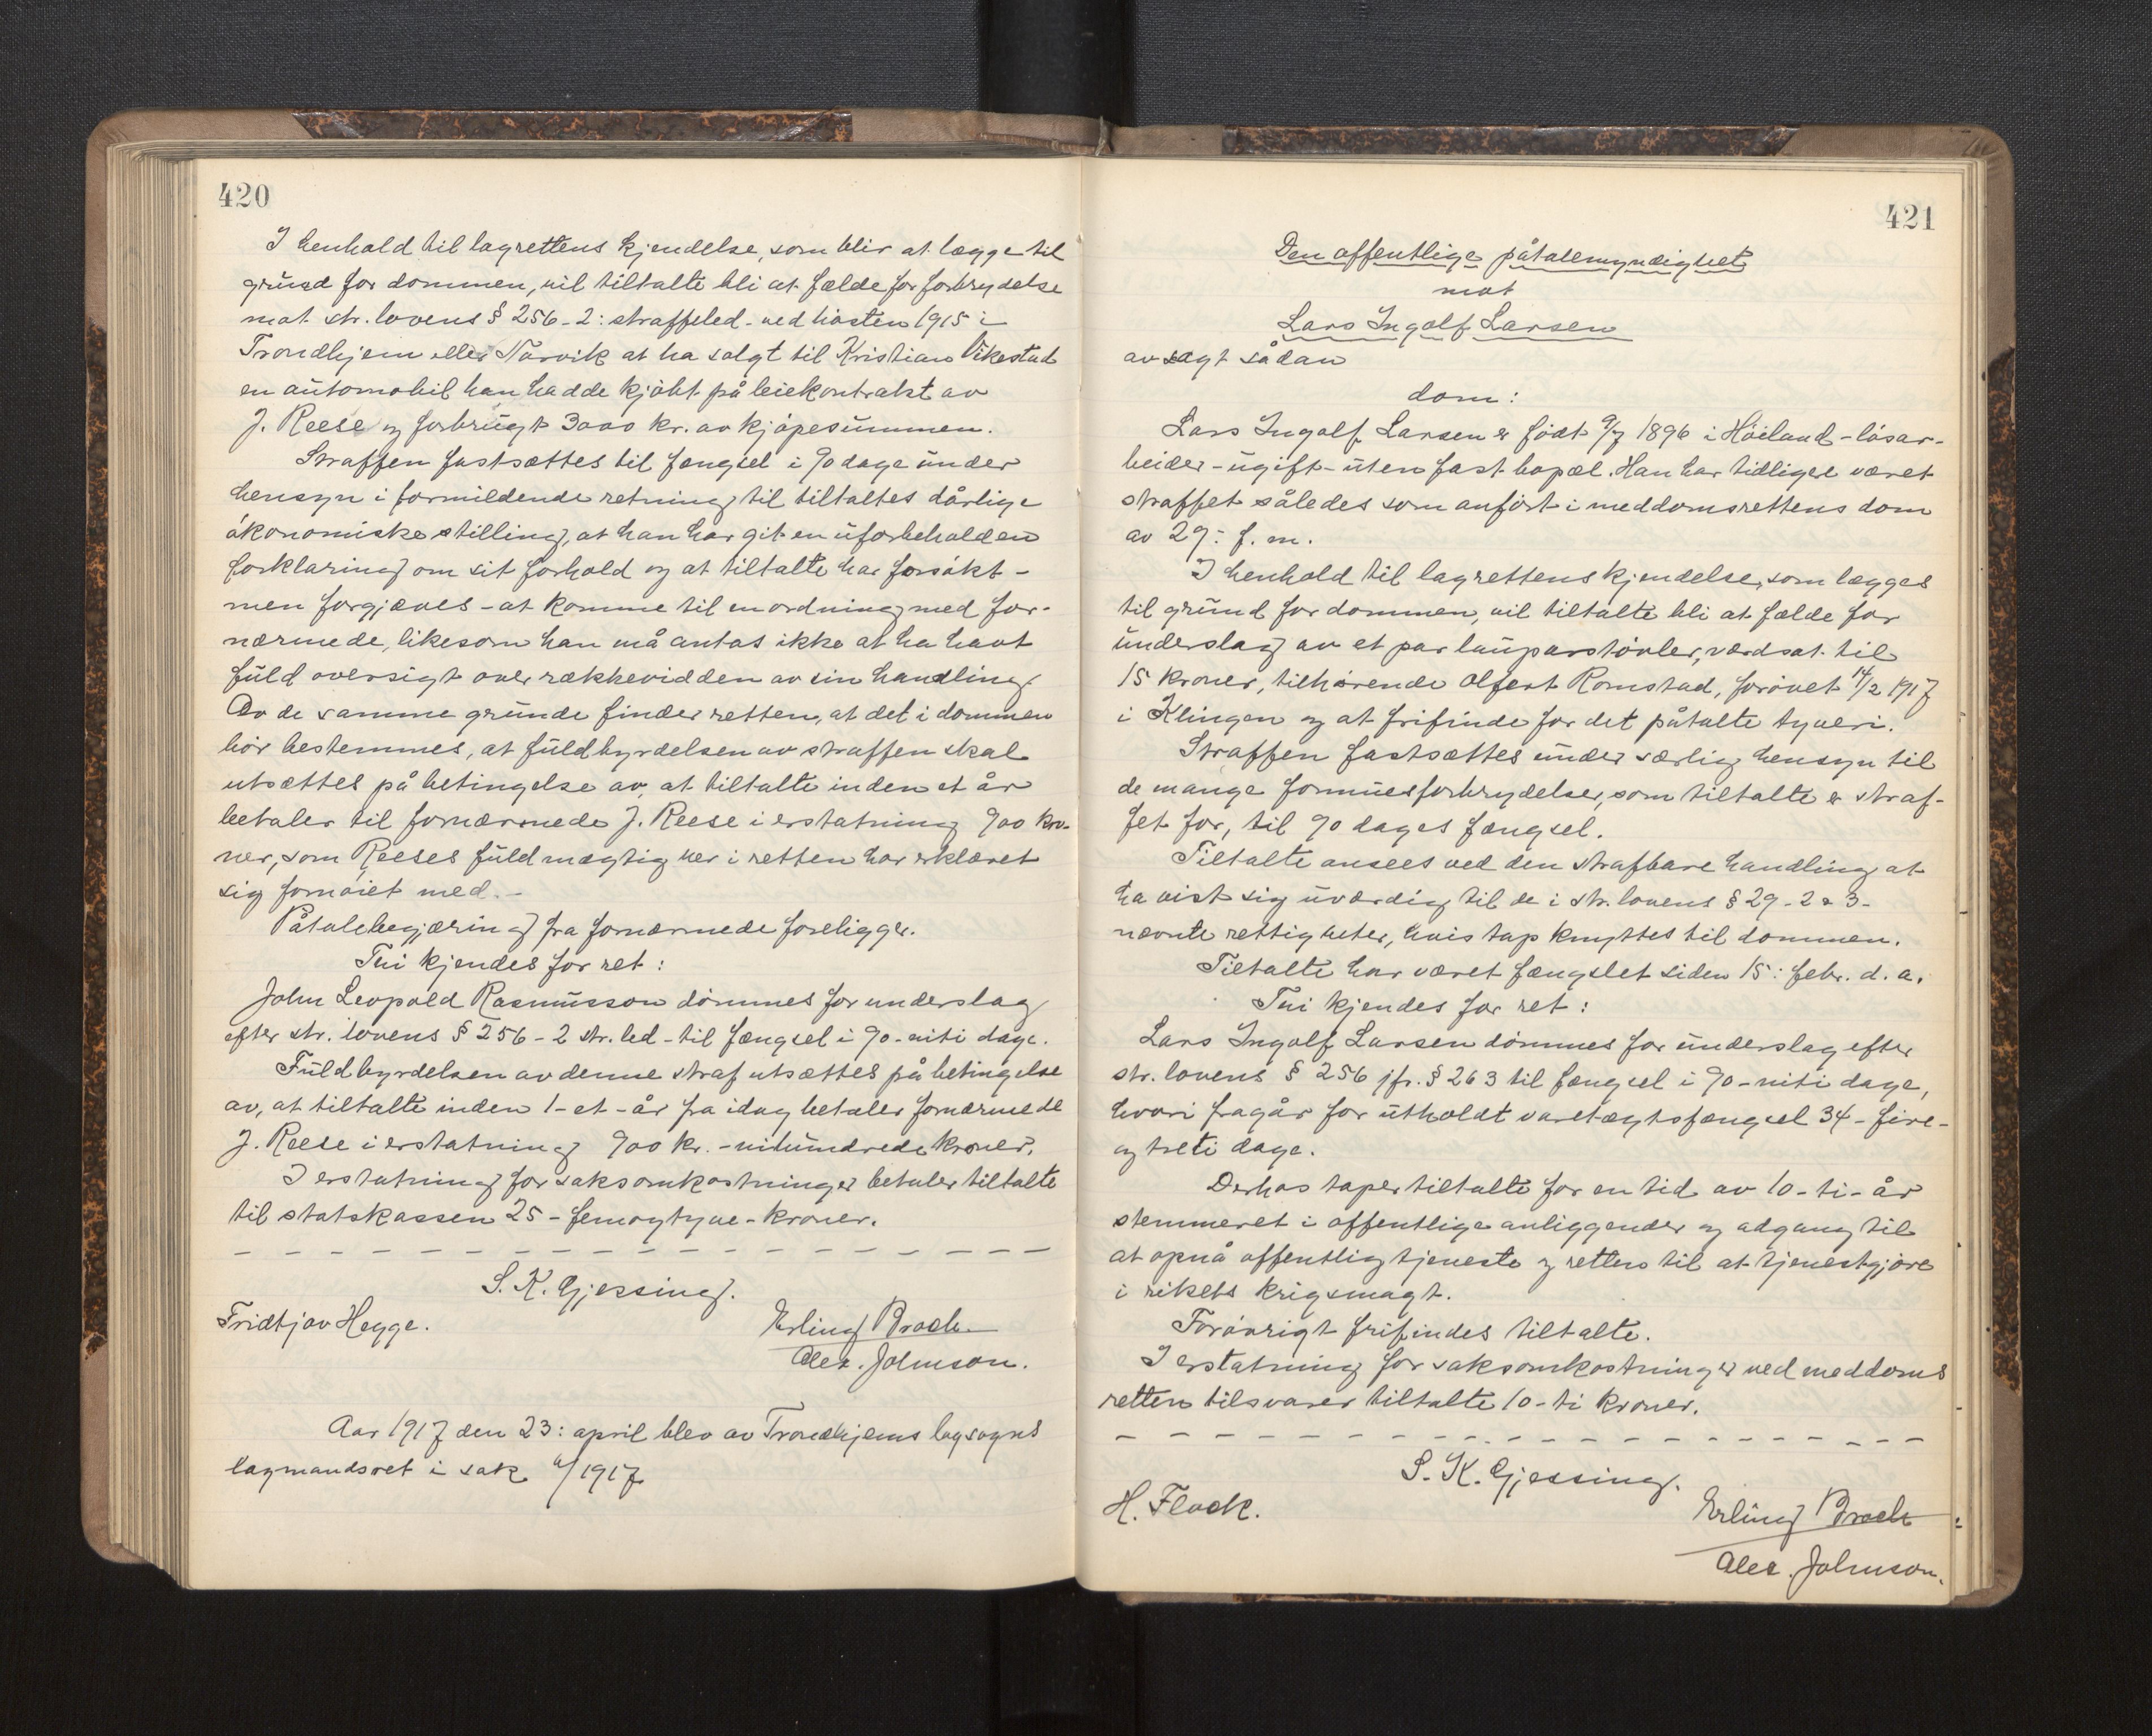 420
I henhold til lagrettens kjendelse, som blir at lægge til
grund for dommen, vil tiltalte bli at fælde for forbrydelse
mot str. lovens § 256 - 2: straffeled - ved høsten 1915 i
Trondhjem eller Narvik at ha solgt til Kristian Vikestad
en automobil han hadde kjøbt på leiekontrakt av
J. Reese og forbrugt 3000 kr. av kjøpesummen.
Straffen fastsættes til fængsel i 90 dage under
hensyn i formildende retning til tiltaltes dårlige
økonomiske stilling, at han har git en uforbeholden
forklaring om sit forhold og at tiltalte har forsøkt -
men forgjæves - at komme til en ordning med for-
nærmede, likesom han må antas ikke at ha havt
fuld oversigt over rækkevidden av sin handling.
Av de samme grunde finder retten, at det i dommen
bør bestemmes, at fuldbyrdelsen av straffen skal
utsættes på betingelse av, at tiltalte inden et år
betaler til fornærmede J. Reese i erstatning 900 kro-
ner, som Reeses fuldmægtig her i retten har erklæret
sig fornøiet med. -
Påtalebegjæring fra fornærmede foreligger.
Thi kjendes for ret:
John Leopold Rasmusson dømmes for underslag
efter str. lovens § 256 - 2 str. led - til fængsel i 90 - niti dage.
Fuldbyrdelsen av denne straf utsættes på betingelse
av, at tiltalte inden 1 - et - år fra idag betaler fornærmede
J. Reese i erstatning 900 kr. - nihundrede kroner.
I erstatning for saksomkostninger betaler tiltalte
til statskassen 25 - femogtyve - kroner.
S. K. Gjessing.
Fridtjov Hegge.
Erling Broch
Alex. Johnson.
Aar 1917 den 23: april blev av Trondhjems lagsogns
lagmandsret i sak /1917
421
Den offentlige påtalemyndighet
mot
Lars Ingolf Larsen
avsagt sådan
dom:
Lars Ingolf Larsen er født 9/7 1896 i Høiland - løsar-
beider - ugift - uten fast bopæl. Han har tidligere været
straffet således som anført i meddomsrettens dom
av 29: f. m.
I henhold til lagrettens kjendelse, som lægges
til grund for dommen, vil tiltalte bli at fælde for
underslag av et par lauparstøvler, værdsat til
15 kroner, tilhørende Olfert Romstad, forøvet 14/2 1917
i Klingen og at frifinde for det påtalte tyveri.
Straffen fastsættes under særlig hensyn til
de mange formuesforbrydelser, som tiltalte er straf-
fet for, til 90 dages fængsel.
Tiltalte ansees ved den strafbare handling at
ha vist sig uværdig til de i str. lovens § 29 - 2 & 3 -
nævnte rettigheter, hvis tap knyttes til dommen.
Tiltalte har været fængslet siden 15: febr. d. a.
Thi kjendes for ret:
Lars Ingolf Larsen dømmes for underslag efter
str. lovens § 256 jfr. § 263 til fængsel i 90 - niti dage,
hvori fragår for utholdt varetægtsfængsel 34 - fire-
og treti dage.
Derhos taper tiltalte for en tid av 10 - ti - år
stemmeret i offentlige anliggender og adgang til
at opnå offentlig tjeneste og retten til at tjenestgjøre
i rikets krigsmagt.
Forøvrigt frifindes tiltalte.
I erstatning for saksomkostninger ved meddoms
retten tilsvarer tiltalte 10 - ti kroner.
S. K. Gjessing.
H. Flock.
Erling Broch
Alex. Johnson.